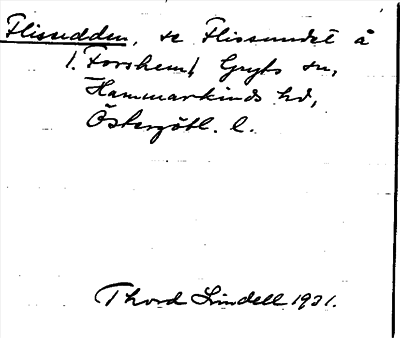 Flisudden, se Flissundet å
1. Forshem, Gryts sn,
Hammarkinds hd,
Östergötl. l.
Thord Lindell 1921.